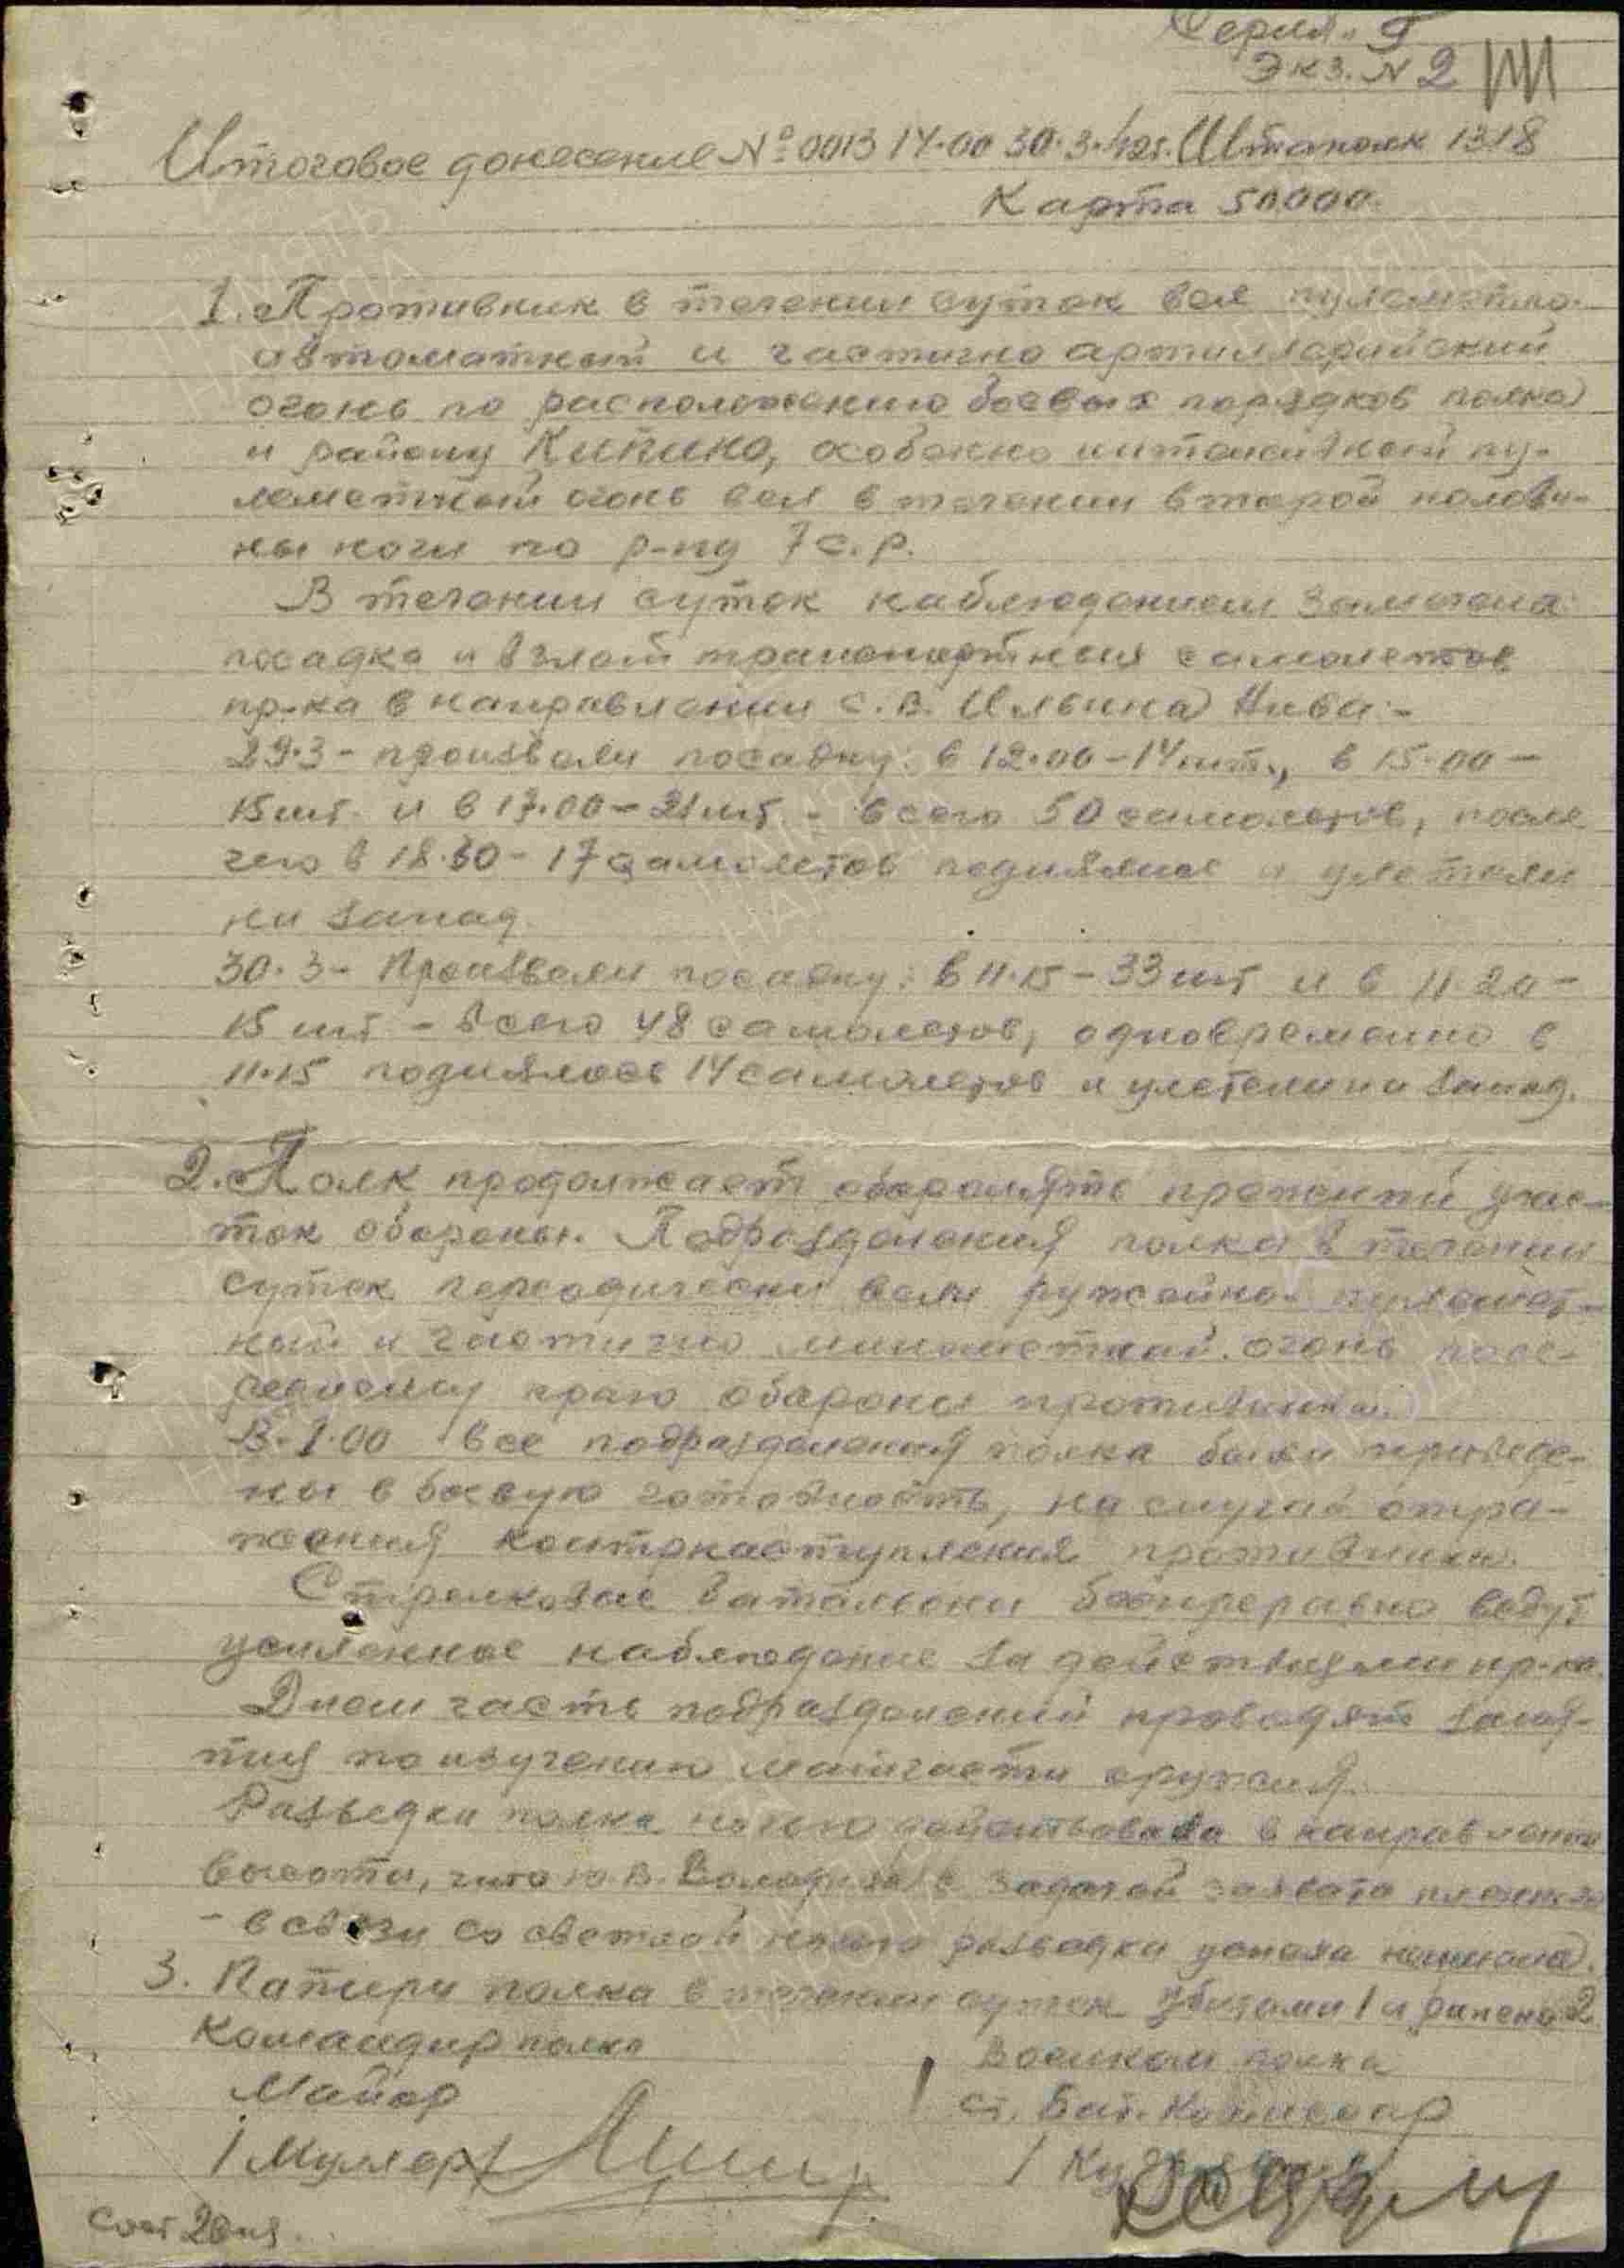 Серия "Г"
Экз. N 2
Итоговое донесение № 0013 14.00 30.3.42г. Штаполк 1318
Карта 50.000.
1. Противник в течении суток вел пулеметно-
автоматный и частично артиллерийский
огонь по расположению боевых порядков полка
и району Кипино, особенно интенсивный пу-
леметный огонь вел в течении второй полови-
ны ночи по р-ну 7 с.р.
В течении суток наблюдением замечена:
посадка и взлет транспортных самолетов
пр-ка в направлении с.в. Ильина Нива:-
29.3 - произвели посадку: в 12.00 - 14 шт., в 15.00 -
15 шт. и в 17.00 - 21 шт. - всего 50 самолетов, после
чего в 18.30 - 17 самолетов поднялись и улетели
на запад.
30.3 - Произвели посадку: в 11.15 - 33 шт и в 11.20 -
15 шт - всего 48 самолетов, одновременно в
11.15 поднялось 14 самолетов и улетели на запад.
2. Полк продолжает оборонять прежний учас-
ток обороны. Подразделения полка в течении
суток переодически вели ружейно-пулемет-
ный и частично минометный огонь по пе-
реднему краю обороны противника.
В 1.00 все подразделения полка были приведе-
ны в боевую готовность, на случай отра-
жения контрнаступления противника.
Стрелковые батальоны беспрерывно ведут
усиленное наблюдение за действиями пр-ка.
Днем часть подразделений проводят заня-
тия по изучению матчасти оружия.
Разведка полка ночью действовала в направлении
высоты, что ю.в. с задачей захвата пленного
- в связи со светлой ночью разведка успеха не имела.
3. Потери полка в течении суток убитыми 1 и ранено 2
Командир полка
Майор
/Муллер/
Военком полка
Ст. Бат. Комиссар